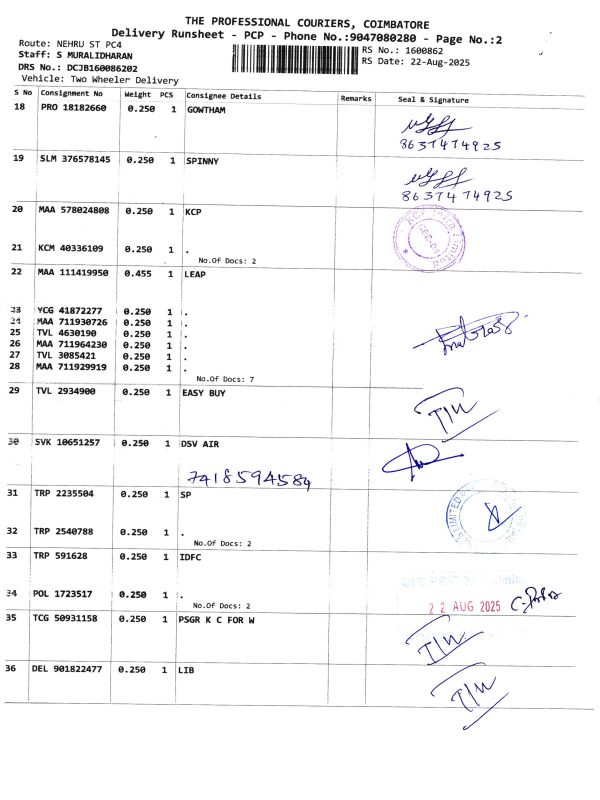 THE PROFESSIONAL COURIERS, COIMBATORE
Delivery Runsheet - PCP - Phone No.:9047080280 - Page No.:2
Route: NEHRU ST PC4
RS No.: 1600862
Staff: S MURALIDHARAN
RS Date: 22-Aug-2025
DRS No.: DCJB160086202
Vehicle: Two Wheeler Delivery
S No Consignment No Weight PCS Consignee Details Remarks Seal & Signature
18 PRO 18182660 0.250 1 GOWTHAM
8637474925
19 SLM 376578145 0.250 1 SPINNY
8637474925
20 MAA 578024808 0.250 1 KCP
21 KCM 40336109 0.250 1 .
No.Of Docs: 2
22 MAA 111419950 0.455 1 LEAP
23 YCG 41872277 0.250 1 .
24 MAA 711930726 0.250 1 .
25 TVL 4630190 0.250 1 .
26 MAA 711964230 0.250 1 .
27 TVL 3085421 0.250 1 .
28 MAA 711929919 0.250 1 .
No.Of Docs: 7
29 TVL 2934900 0.250 1 EASY BUY
30 SVK 10651257 0.250 1 DSV AIR
7418594584
31 TRP 2235504 0.250 1 SP
32 TRP 2540788 0.250 1 .
No.Of Docs: 2
33 TRP 591628 0.250 1 IDFC
IDFC FIRST
34 POL 1723517 0.250 1 .
No.Of Docs: 2
22 AUG 2025
35 TCG 50931158 0.250 1 PSGR K C FOR W
36 DEL 901822477 0.250 1 LIB